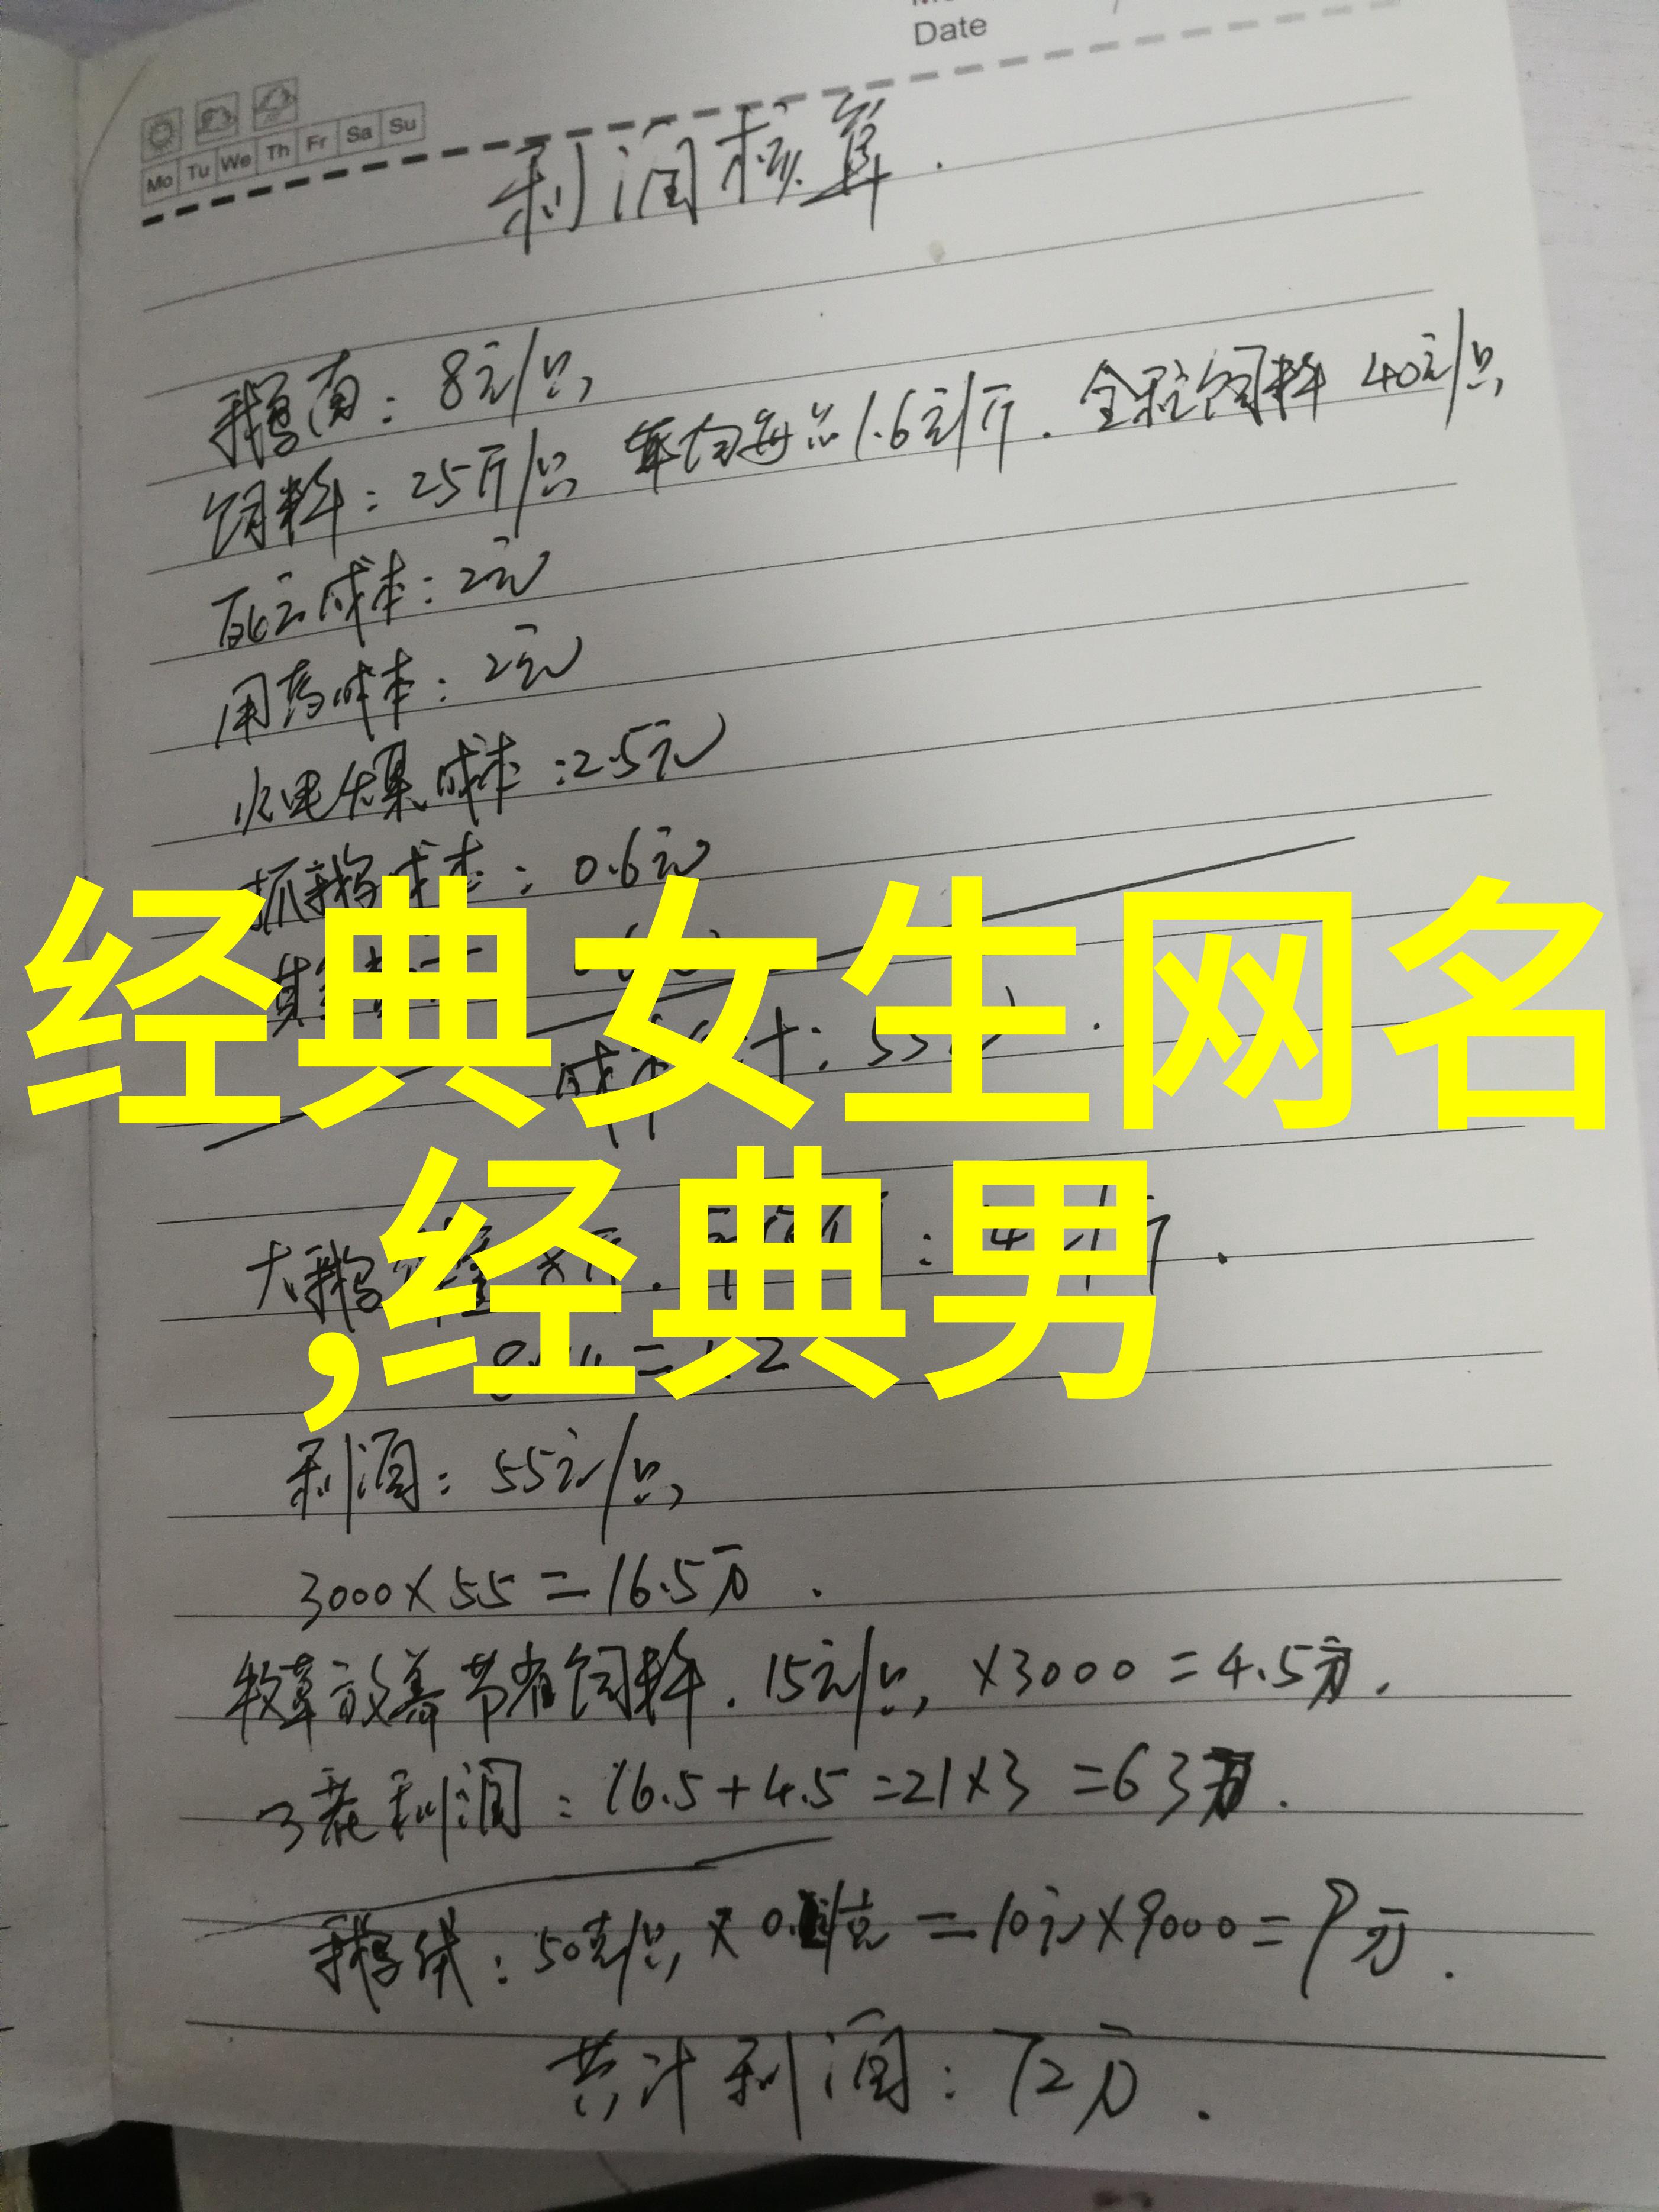 Date
Mo Tu We Th Fr Sa Su
利润核算.
鹅苗：8元/只
饲料：25斤/只 平均每斤1.6元/斤. 全程饲料 40元/只
死亡成本：2元
用药成本：2元
水电煤成本：2.5元
抓鹅成本：0.6元
经典女生网名
,经典男
利润：55元/只
3000×55=16.5万.
牧草放养节省饲料. 15元/只 ×3000=4.5万.
3茬利润：16.5+4.5=21×3=63万.
鹅绒：50克/只 × =10元×9000=9万.
共计利润：72万.